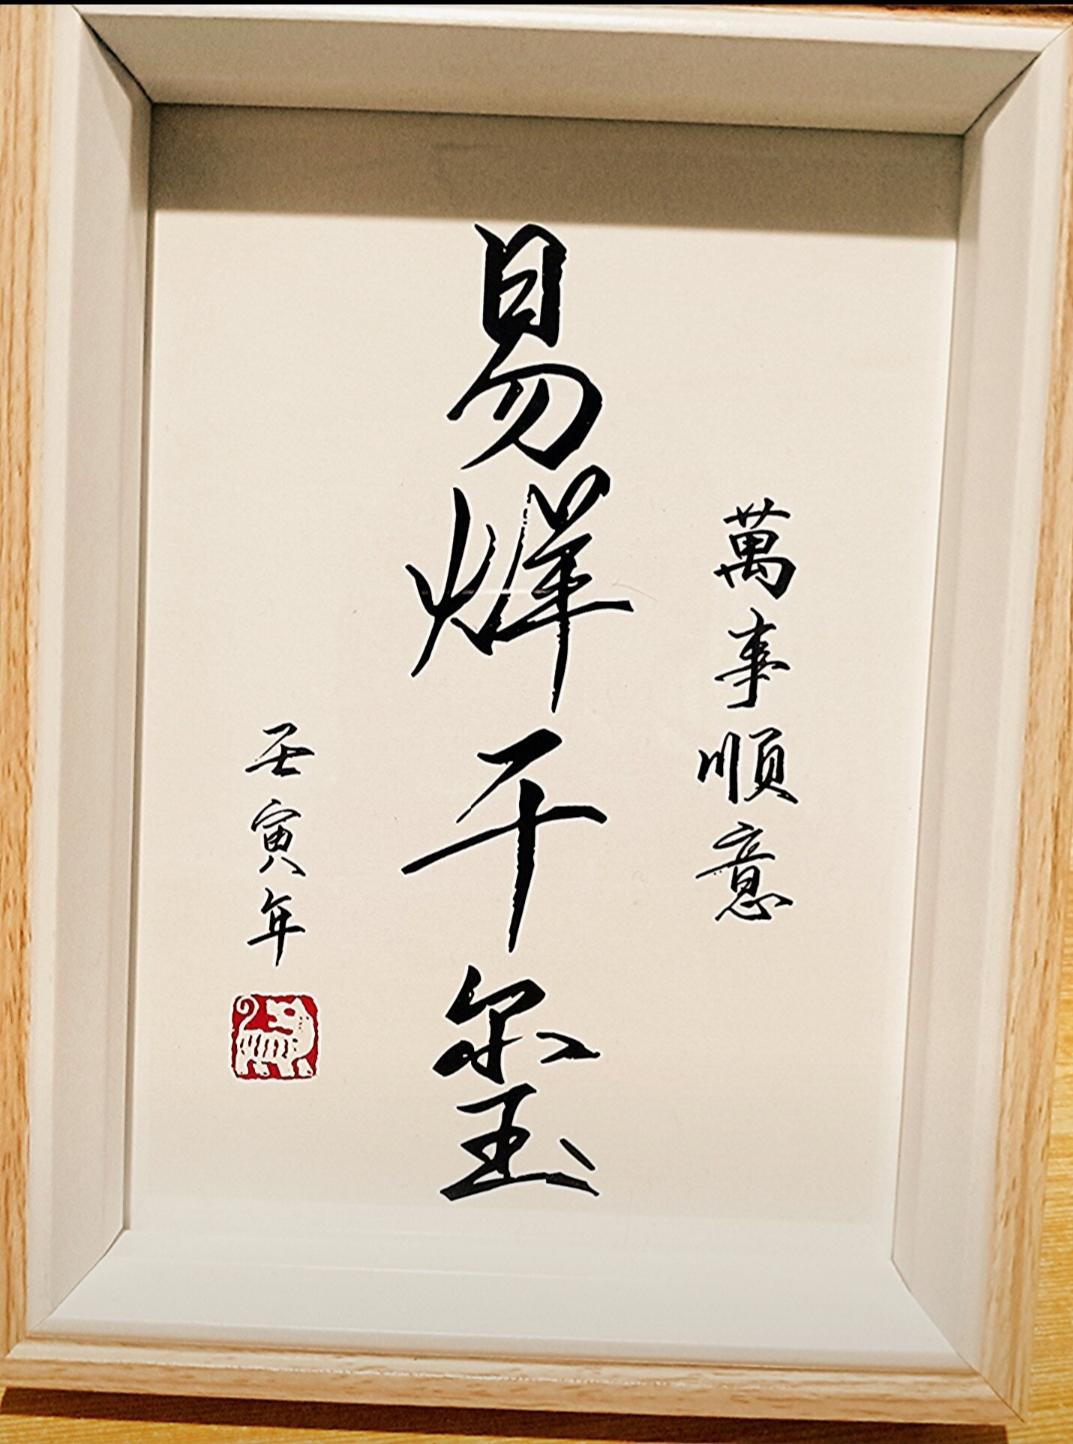 萬事順意
易烊千玺
壬寅年